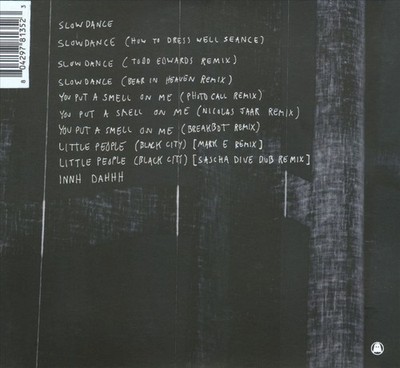 SLOWDANCE
SLOWDANCE (HOW TO DRESS WELL SEANCE)
SLOWDANCE (TODD EDWARDS REMIX)
SLOWDANCE (BEAR IN HEAVEN REMIX)
YOU PUT A SMELL ON ME (PHOTO CALL REMIX)
YOU PUT A SMELL ON ME (NICOLAS JAAR REMIX)
YOU PUT A SMELL ON ME (BREAKBOT REMIX)
LITTLE PEOPLE (BLACK CITY) [MARK E REMIX]
LITTLE PEOPLE (BLACK CITY) [SASCHA DIVE DUB REMIX]
INNH DAHHH
8 04297 81352 3